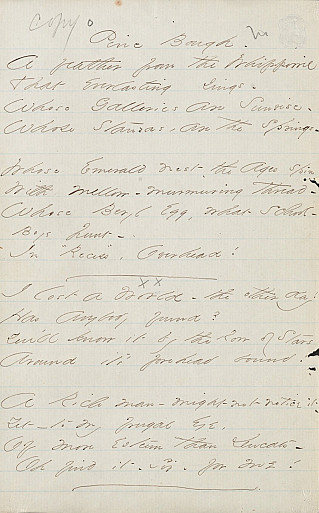 copy
Pine Bough.
A feather from the Whippowil
That Everlasting sings -
Whose Galleries are Sunrise -
Whose Stanzas, are the Springs -
Whose Emerald nest the Ages spin
With mellow - murmuring Thread -
Whose Beryl Egg, what School-
Boys hunt -
In Recess, Overhead!
X X
I lost a World - the other day!
Has Anybody found?
You'll know it by the Row of Stars
Around it's forehead bound!
A Rich man - might not notice it -
Yet - to my frugal Eye,
Of more Esteem than Ducats -
Oh find it - Sir - for me!